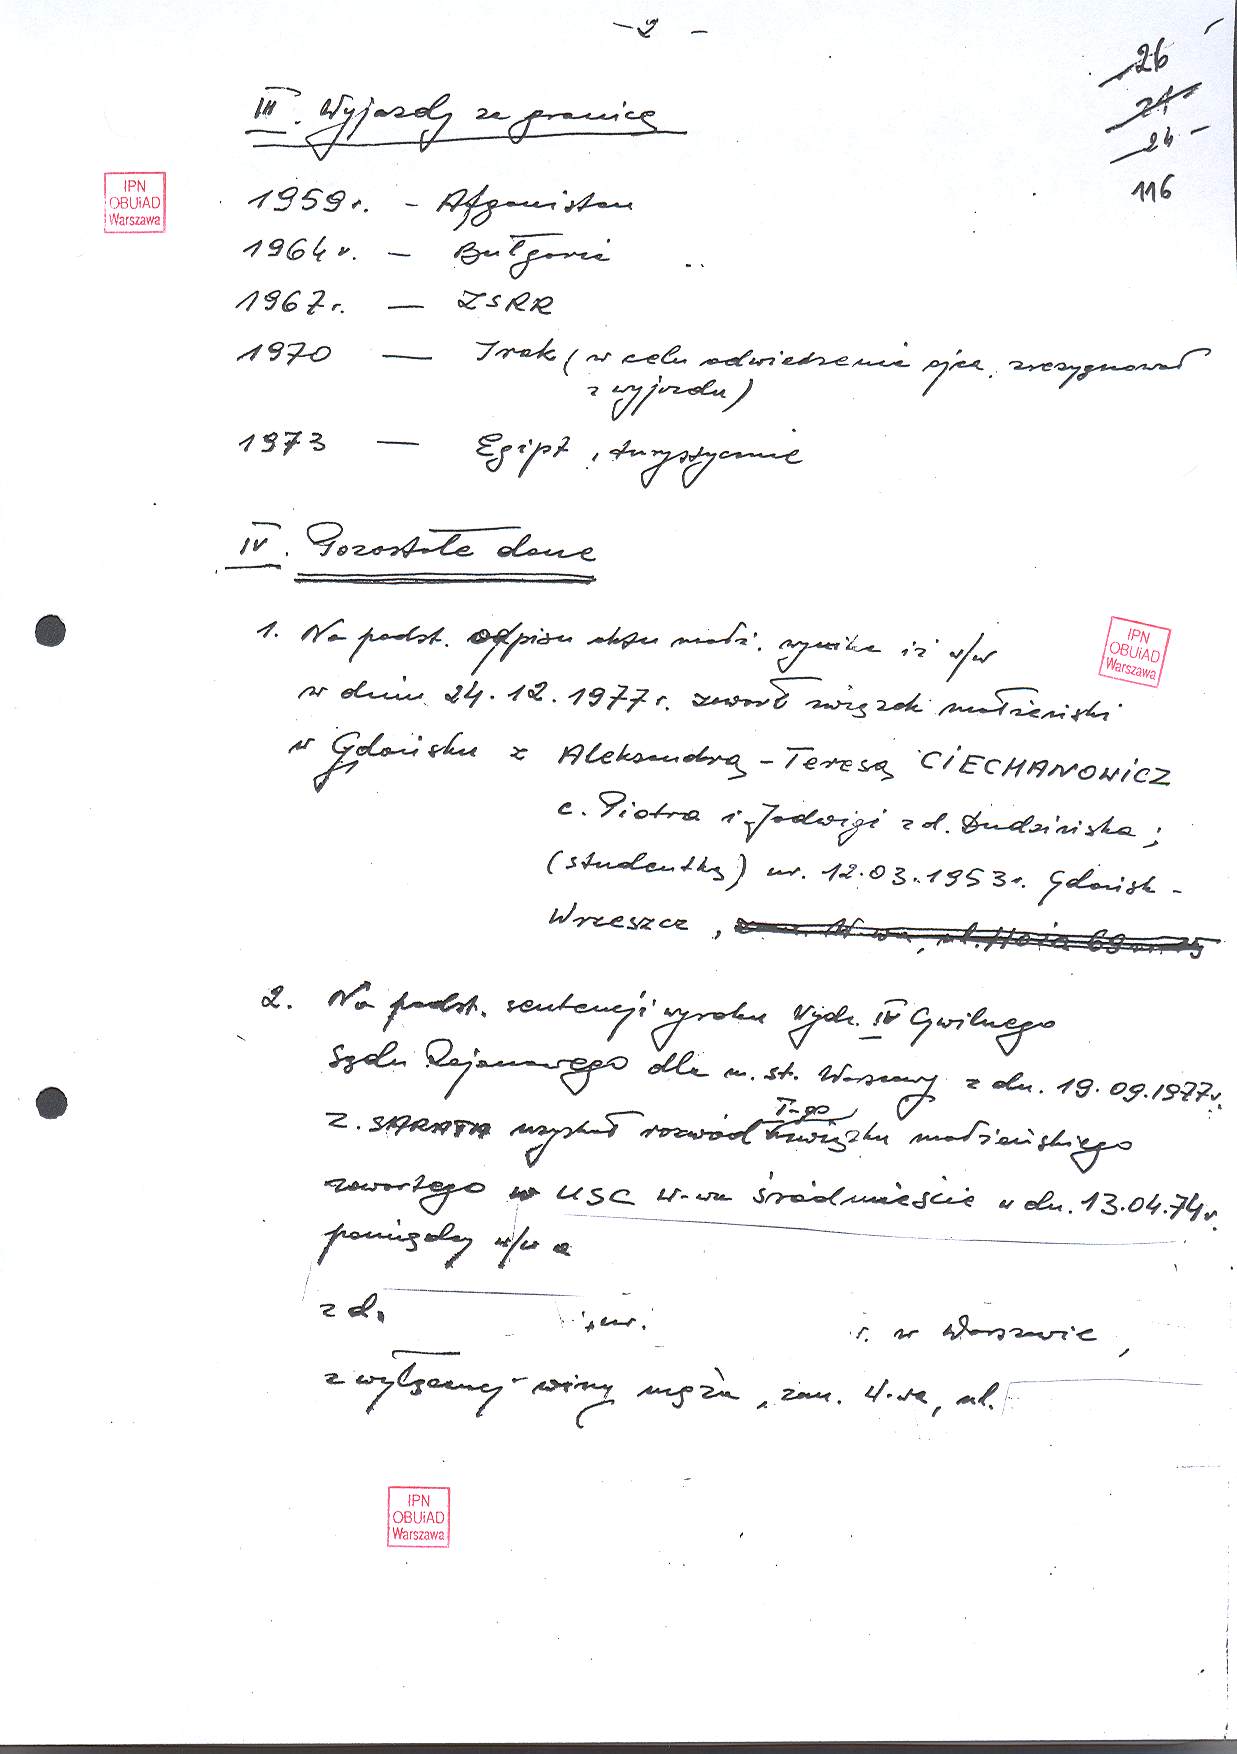 – 2 –
26
21
24 –
116
III. Wyjazdy za granicę
IPN
OBUiAD
Warszawa
1959 r. – Afganistan
1964 r. – Bułgaria
1967 r. – ZSRR
1970 – Irak ( w celu odwiedzenia ojca, zrezygnował
z wyjazdu )
1973 – Egipt, turystycznie
IV. Pozostałe dane
1. Na podst. odpisu aktu małż. wynika iż w/w
IPN
OBUiAD
Warszawa
w dniu 24.12.1977 r. zawarł związek małżeński
w Gdańsku z Aleksandrą – Teresą CIECHANOWICZ
c. Piotra i Jadwigi z d. Dudzińska ;
(studentką) ur. 12.03.1953 r. Gdańsk –
Wrzeszcz ,
2. Na podst. sentencji wyroku Wydz. IV Cywilnego
Sądu Rejonowego dla m. st. Warszawy z dn. 19.09.1977 r.
Z. SARATA uzyskał rozwód I-go związku małżeńskiego
zawartego w USC W-wa śródmieście w dn. 13.04.74 r.
pomiędzy w/w a
z d. , ur. r. w Warszawie ,
z wyłącznej winy męża , zam. W-wa, ul.
IPN
OBUiAD
Warszawa